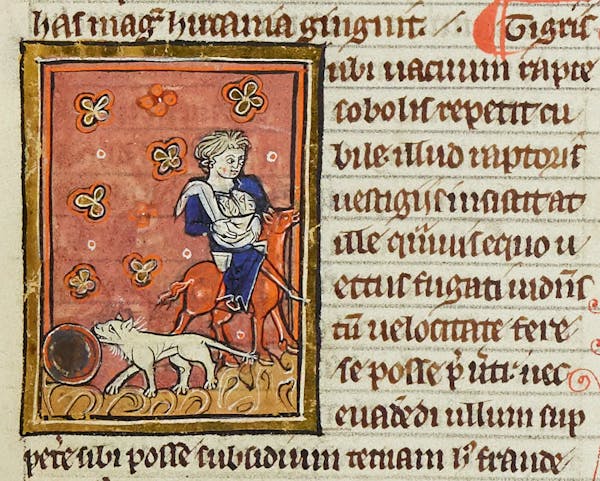 has mag̃ hircania gingnit. Tigris
ubi uacuum rapte
sobolis repetit cu
bile. illud raptoris
uestigiis insistit at
ille quuis equo u
ectus fugati uidñs
tñ uelocitate fere
se posse p̃uti. nec
euadẽdi ullum sup
petẽ sibi posse subsidium tecnam ħ fraude